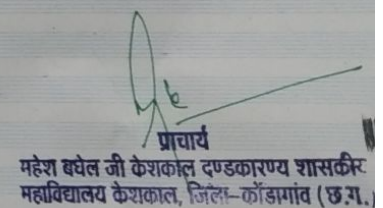 प्राचार्य
महेश बघेल जी केशकाल दण्डकारण्य शासकीर
महाविद्यालय केशकाल, जिला-कोंडागांव (छ.ग.)